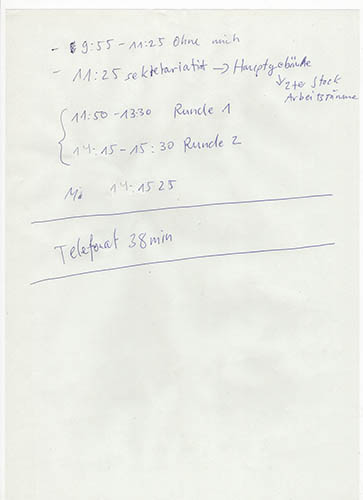 - 9:55 - 11:25 Ohne mich
- 11:25 sekretariatit → Hauptgebäude
↓ 2te Stock
Arbeitsräume
11:50 - 13:30 Runde 1
14:15 - 15:30 Runde 2
Mi 14:1525
Telefonat 38min